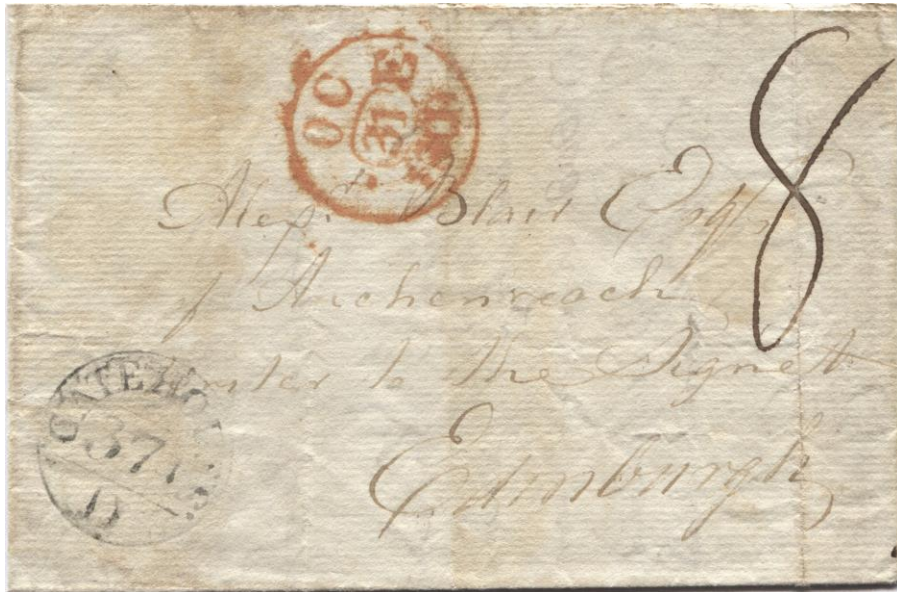 OC
E
31
8
Alexr. Blair Esqr.
of Auchenreoch
Writer to the Signett
Edinburgh
GATEHOUSE
D